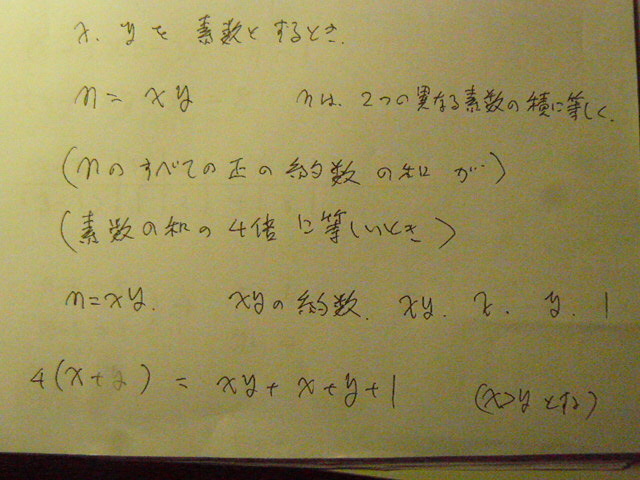 x、yを素数とするとき.
n = xy nは、2つの異なる素数の積に等しく.
(nのすべての正の約数の和が)
(素数の和の4倍に等しいとき)
n=xy. xyの約数. xy. x. y. 1
4(x+y) = xy+x+y+1 (x>yとする)